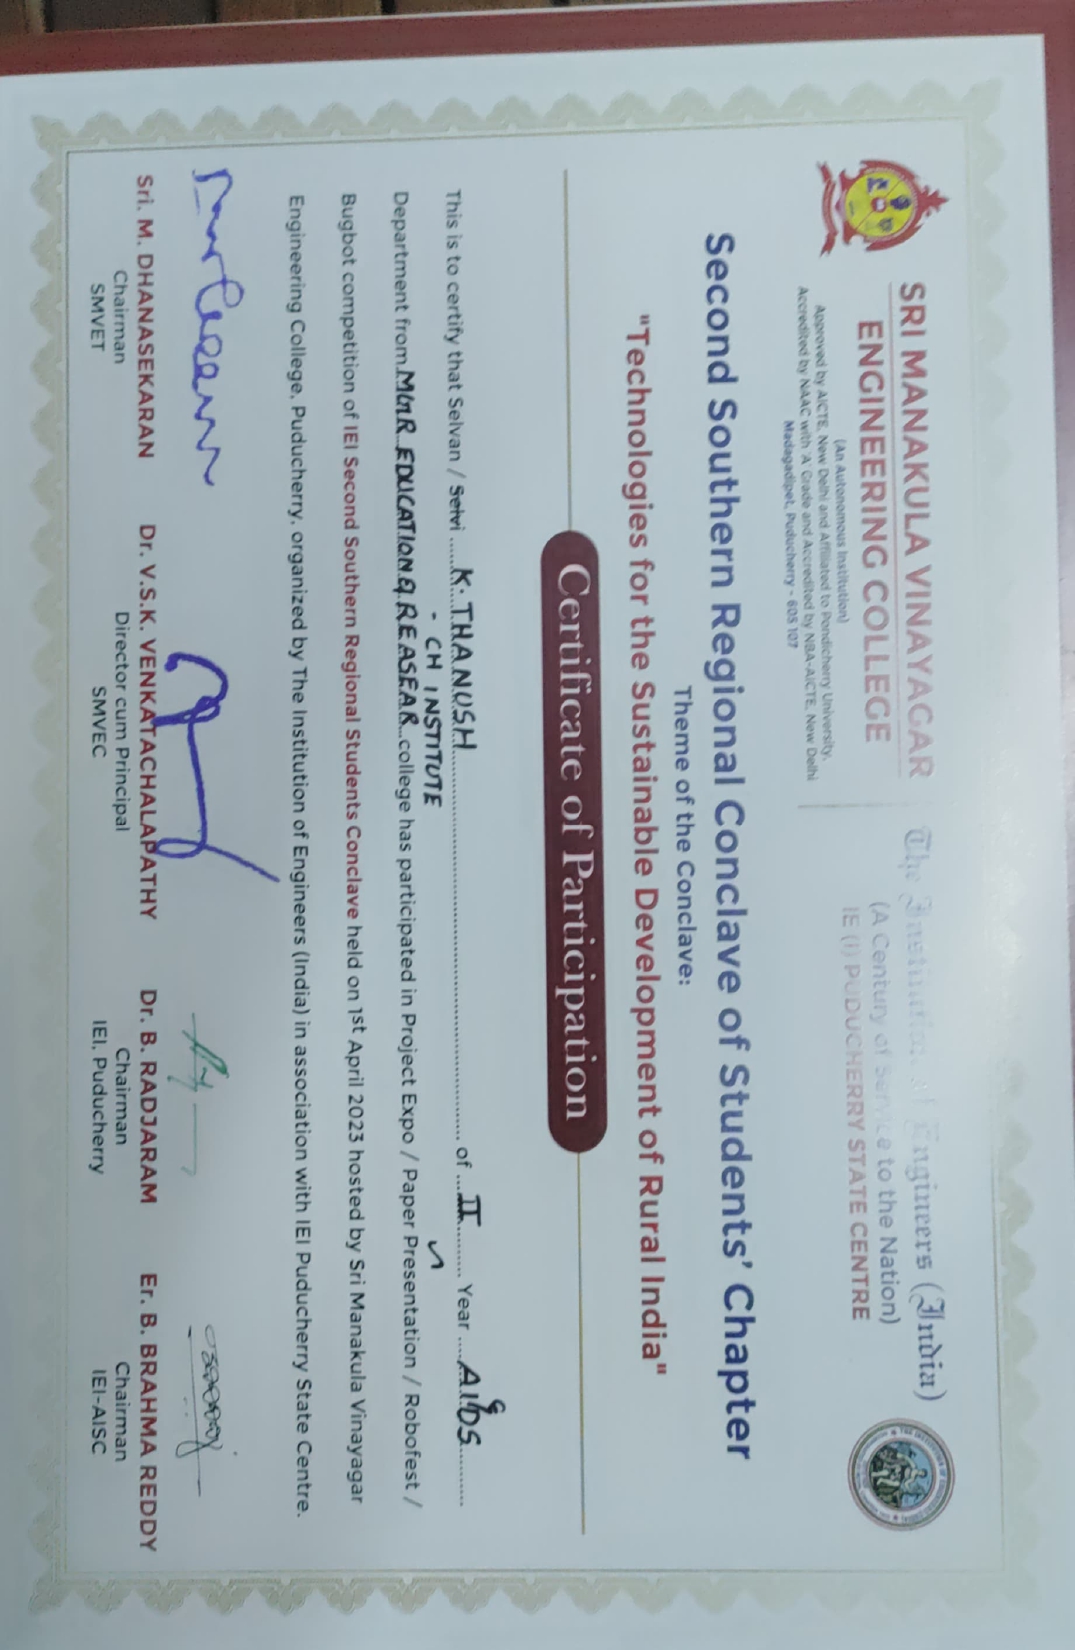 SRI MANAKULA VINAYAGAR
ENGINEERING COLLEGE
(An Autonomous Institution)
Approved by AICTE, New Delhi and Affiliated to Pondicherry University,
Accredited by NAAC with 'A' Grade and Accredited by NBA-AICTE, New Delhi
Madagadipet, Puducherry - 605 107
The Institution of Engineers (India)
(A Century of Service to the Nation)
IE (I) PUDUCHERRY STATE CENTRE
Second Southern Regional Conclave of Students' Chapter
Theme of the Conclave:
"Technologies for the Sustainable Development of Rural India"
Certificate of Participation
This is to certify that Selvan / Selvi K. THANUSH of II Year AI&DS
- CH INSTITUTE
Department from MGR EDUCATION & REASEAR college has participated in Project Expo / Paper Presentation / Robofest /
Bugbot competition of IEI Second Southern Regional Students Conclave held on 1st April 2023 hosted by Sri Manakula Vinayagar
Engineering College, Puducherry, organized by The Institution of Engineers (India) in association with IEI Puducherry State Centre.
Sri. M. DHANASEKARAN
Chairman
SMVET
Dr. V.S.K. VENKATACHALAPATHY
Director cum Principal
SMVEC
Dr. B. RADJARAM
Chairman
IEI, Puducherry
Er. B. BRAHMA REDDY
Chairman
IEI-AISC